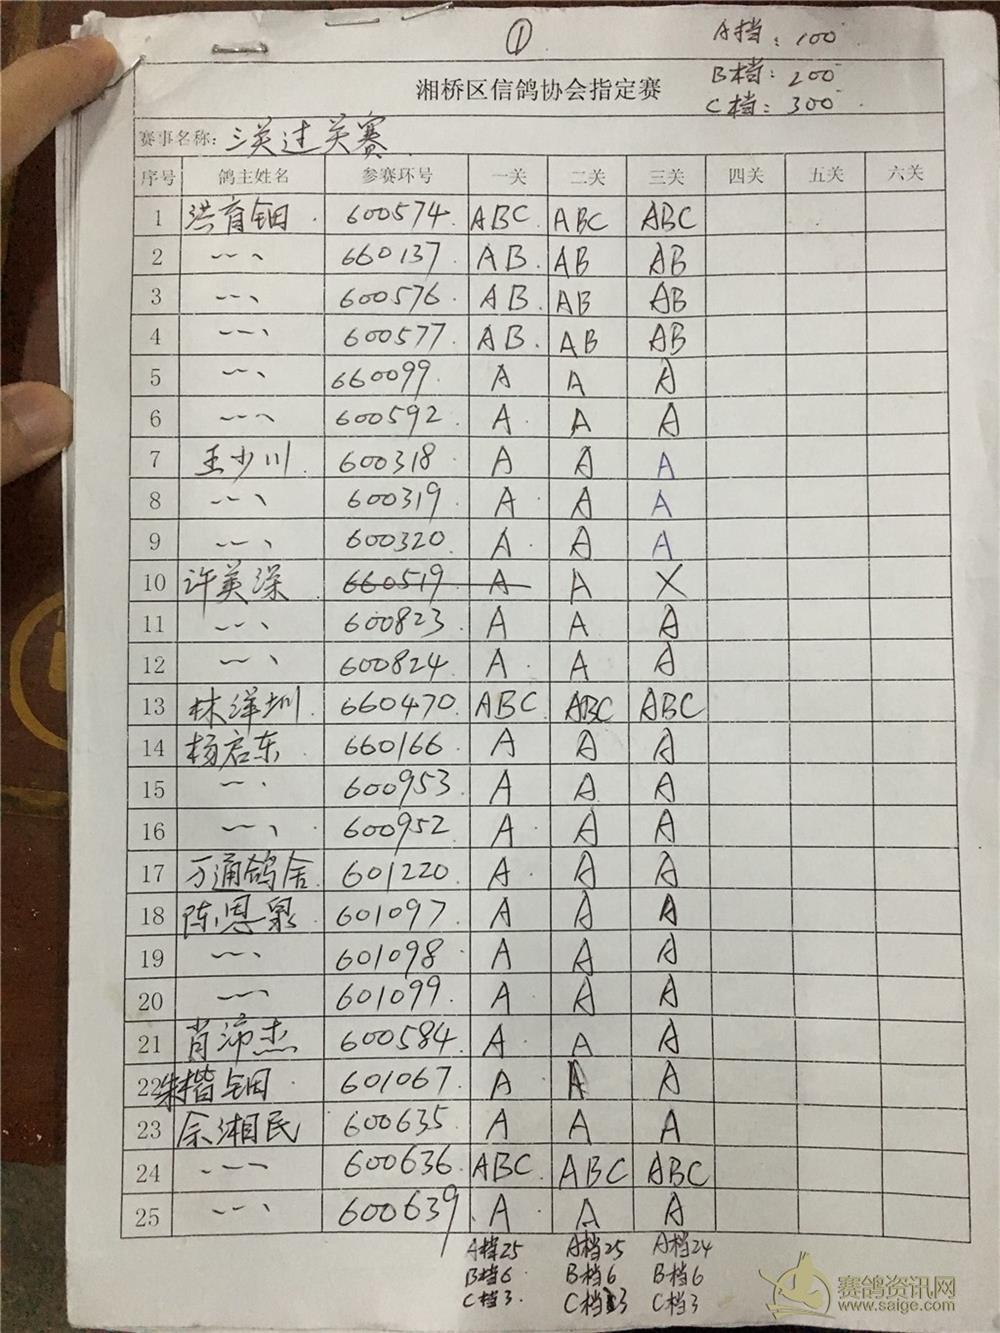 ①
A档：100
B档：200
C档：300
湘桥区信鸽协会指定赛
赛事名称：三关过关赛
序号 鸽主姓名 参赛环号 一关 二关 三关 四关 五关 六关
1 洪育钿. 600574. ABC. ABC ABC
2 〃 660137. AB. AB AB
3 〃 600576. AB. AB AB
4 〃 600577. AB. AB AB
5 〃 660099. A A A
6 〃 600592. A. A A
7 王少川. 600318. A A A
8 〃 600319. A. A A
9 〃 600320. A. A A
10 许英深. 660519 A A X
11 〃 600823. A A A
12 〃 600824. A. A A
13 林泽圳. 660470. ABC. ABC ABC
14 杨启东 660166. A A A
15 〃 600953 A. A A
16 〃 600952. A. A A
17 万通鸽舍. 601220. A. A A
18 陈恩泉. 601097. A. A A
19 〃 601098. A A A
20 〃 601099. A. A A
21 肖沛杰 600584. A. A A
22 朱楷钿. 601067. A. A A
23 余湘民 600635. A. A A
24 〃 600636. ABC. ABC ABC
25 〃 600639. A. A A
A档25 A档25 A档24
B档6 B档6 B档6
C档3. C档3 C档3
赛鸽资讯网
www.saige.com